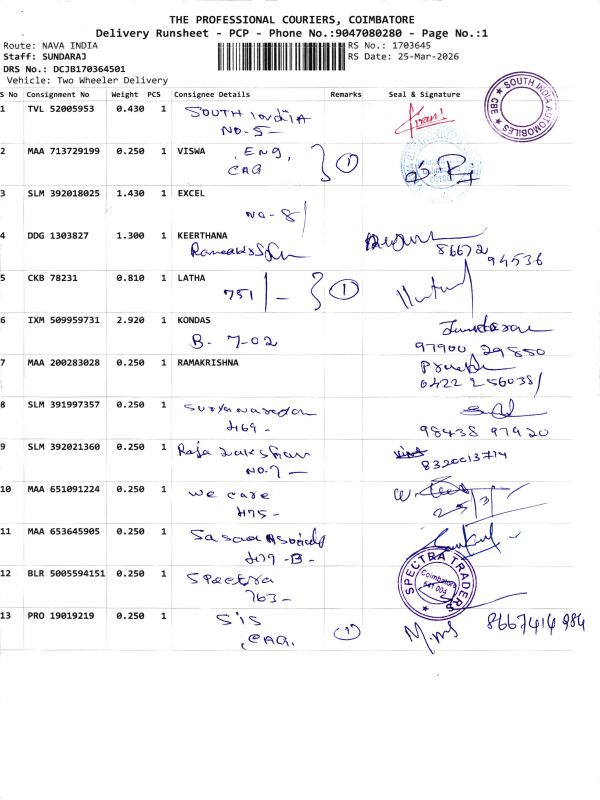 THE PROFESSIONAL COURIERS, COIMBATORE
Delivery Runsheet - PCP - Phone No.:9047080280 - Page No.:1
Route: NAVA INDIA
RS No.: 1703645
Staff: SUNDARAJ
RS Date: 25-Mar-2026
DRS No.: DCJB170364501
Vehicle: Two Wheeler Delivery
S No Consignment No Weight PCS Consignee Details Remarks Seal & Signature
1 TVL 52005953 0.430 1 SOUTH India
NO-5-
SOUTH INDIA AUTOMOBILES CBE
2 MAA 713729199 0.250 1 VISWA ENG, 1
CAG
3 SLM 392018025 1.430 1 EXCEL
NO-8/
4 DDG 1303827 1.300 1 KEERTHANA
86672
94536
5 CKB 78231 0.810 1 LATHA
751/- 1
6 IXM 509959731 2.920 1 KONDAS
B- 7-02
97900 29850
7 MAA 200283028 0.250 1 RAMAKRISHNA
0422 256038/
8 SLM 391997357 0.250 1
H69-
98438 97920
9 SLM 392021360 0.250 1 Raja
NO.7-
8320013714
10 MAA 651091224 0.250 1 we care
H75-
25/3/
11 MAA 653645905 0.250 1
H79-B-
12 BLR 5005594151 0.250 1 Spectra
763-
SPECTRA TRADERS
Coimbatore
641 004
13 PRO 19019219 0.250 1 SIS 1 8667414984
CAG.